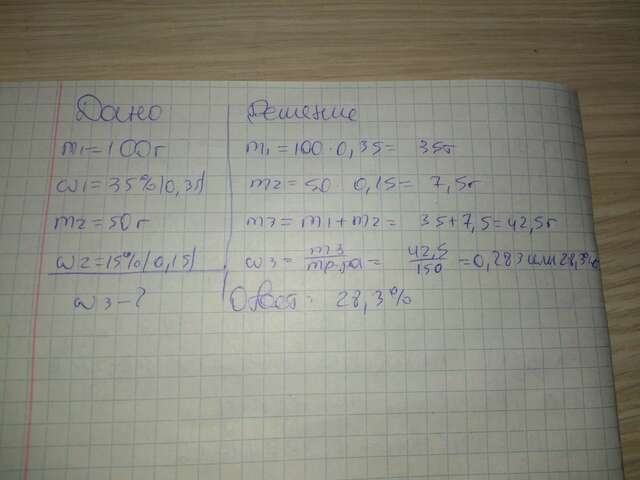 Дано
m1=100г
ω1=35%(0,35)
m2=50г
ω2=15%(0,15)
ω3-?
Решение
m1=100·0,35= 35г
m2=50·0,15= 7,5г
m3=m1+m2= 35+7,5=42,5г
ω3= m3/mр.ра = 42,5/150 =0,283 или 28,3%
Ответ: 28,3%